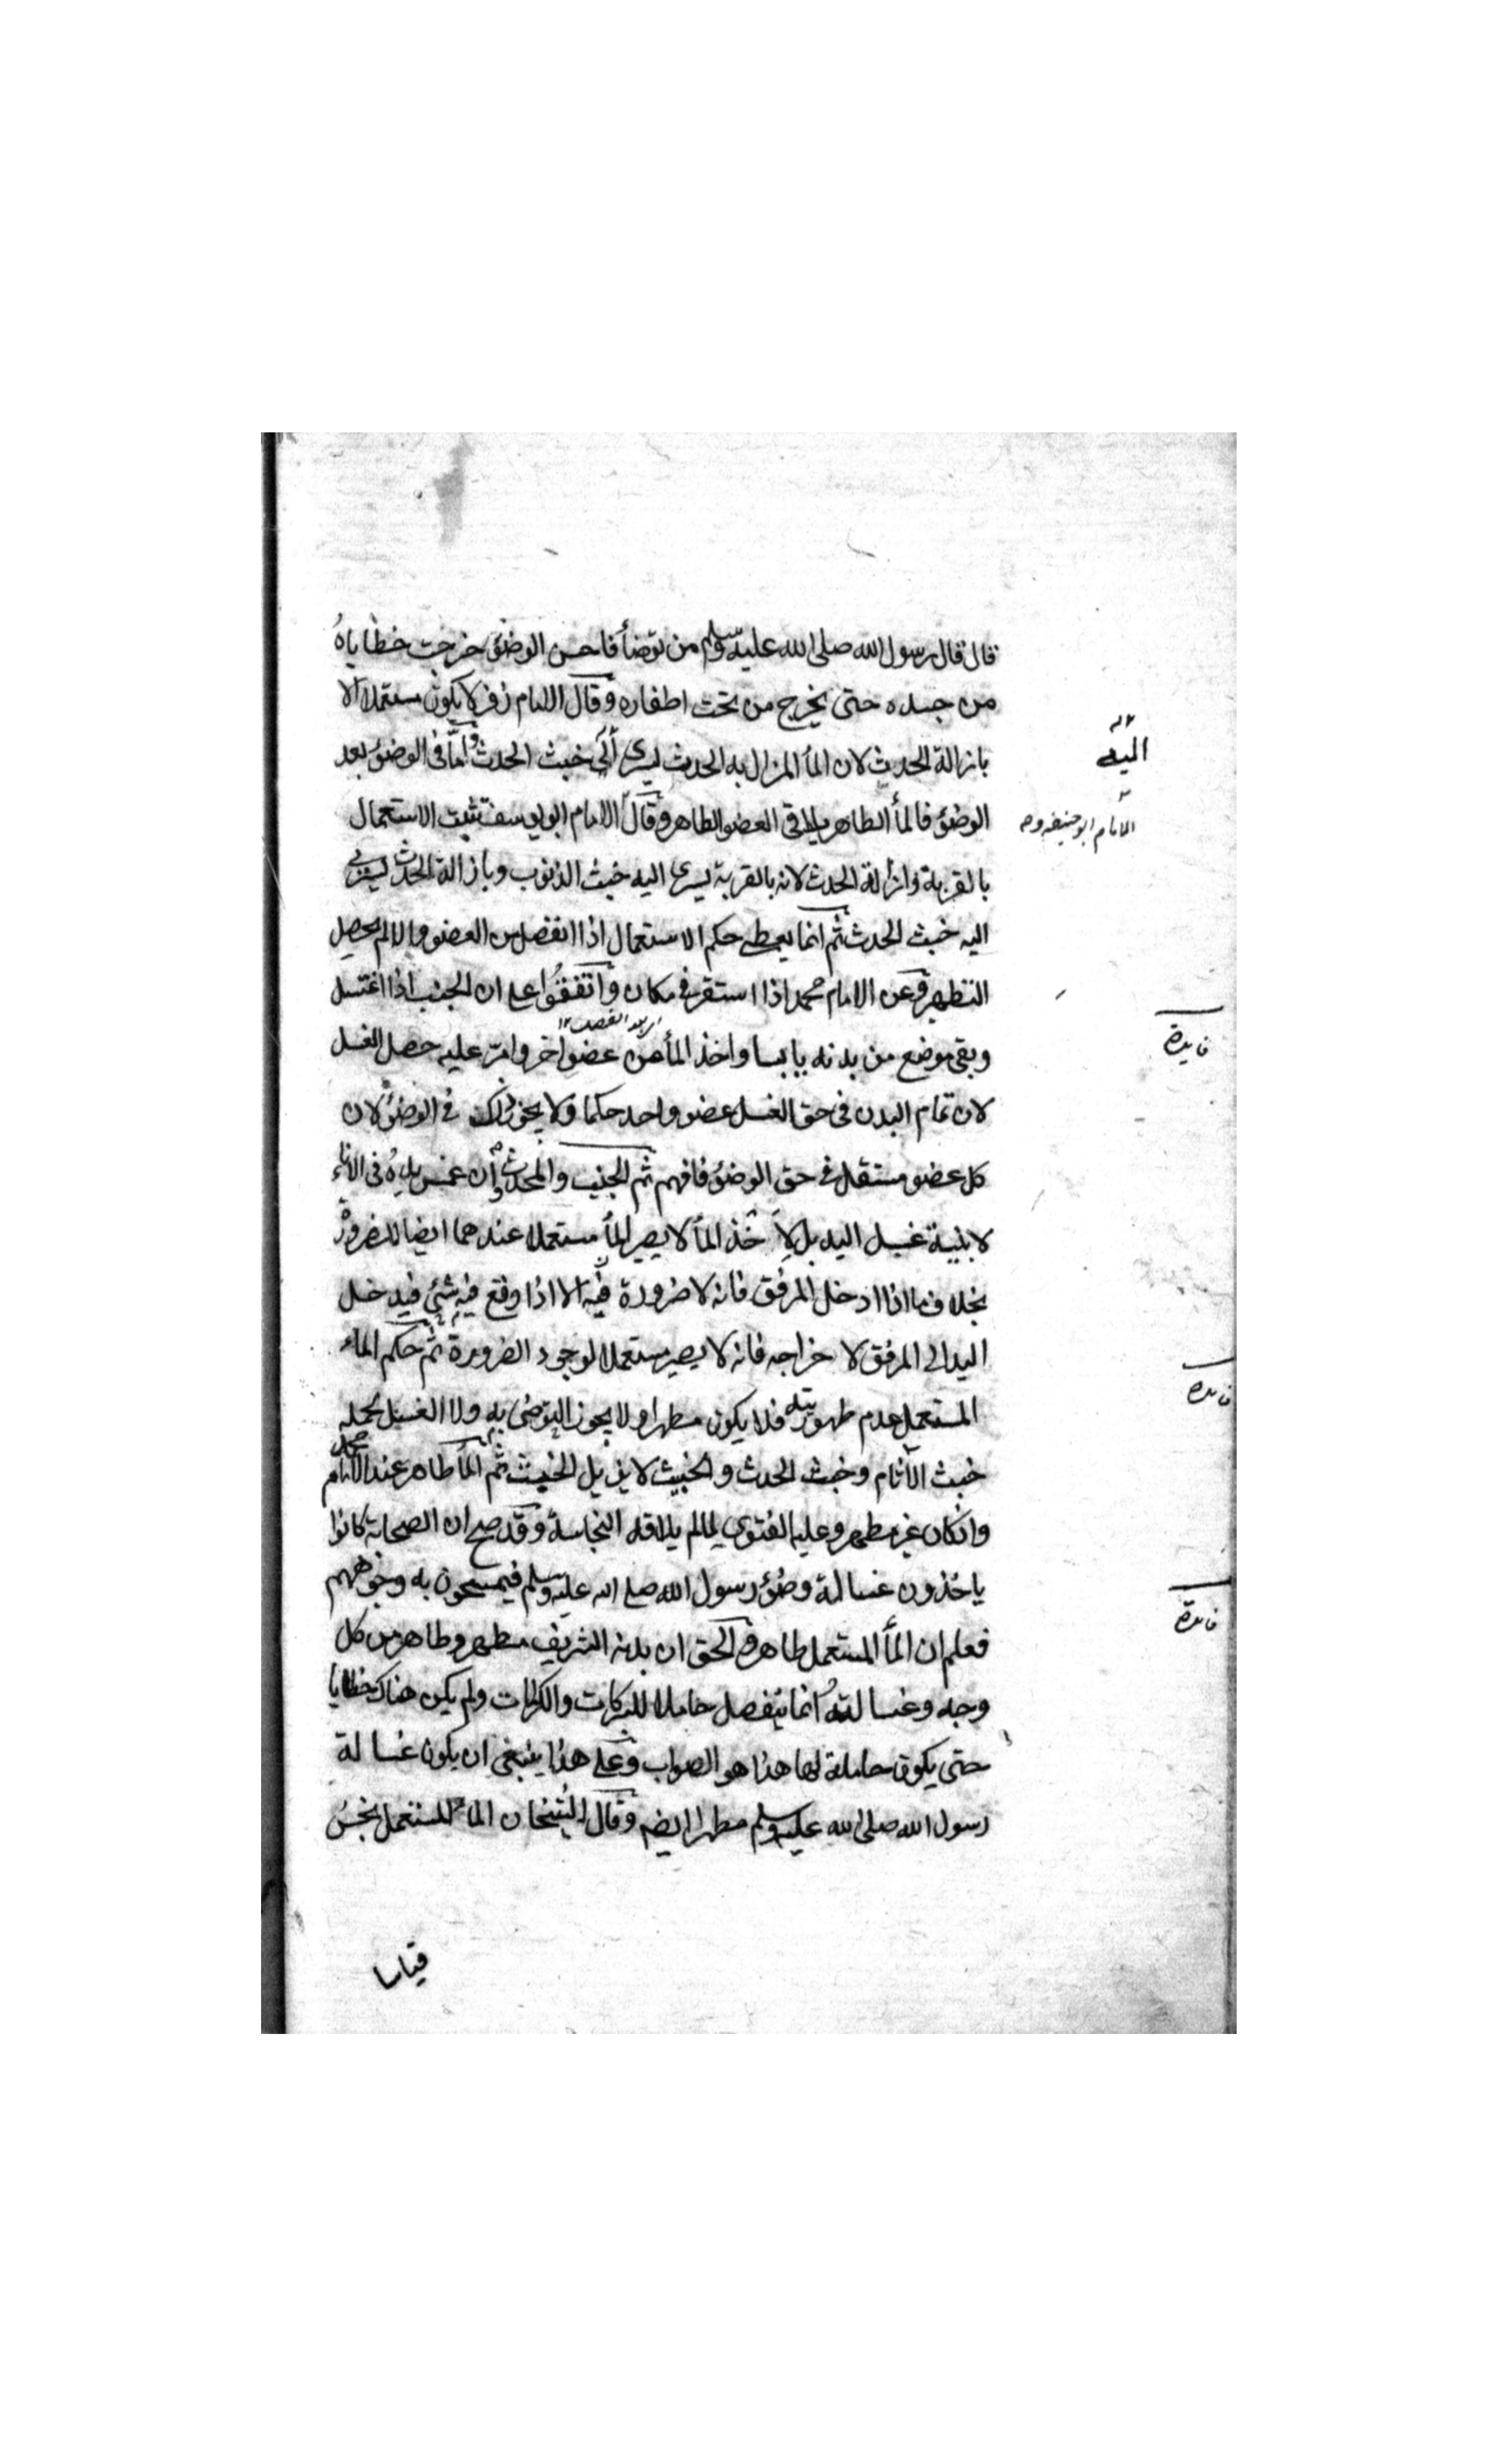 قال قال رسول الله صلى الله عليه وسلم من توضأ فاحسن الوضؤ خرجت خطاياه
من جسده حتى يخرج من تحت اظفاره وقال الامام زفر لا يكون مستعملا الا
بازالة الحدث لان المأ المزال به الحدث ليسرى خبث الحدث واما فى الوضؤ بعد
اليه
الوضؤ فالمأ الطاهر يلاقى العضو الطاهر وقال الامام ابو يوسف تثبت الاستعمال
الامام ابو حنيفه و
بالقربة وازالة الحدث لانه بالقربة يسرى اليه خبث الذنوب وبازالة الحدث يسرى
اليه خبث الحدث ثم انما يعطى حكم الاستعمال اذا انفصل من العضو والا لم يحصل
التطهر وعن الامام محمد اذا استقر فى مكان واتفقوا على ان الجنب اذا اغتسل
فايدة
وبقى موضع من بدنه يابسا واخذ المأ من عضو اخر وامر عليه حصل الغسل
لان تمام البدن فى حق الغسل عضو واحد حكما ولا يجوز ذلك فى الوضؤ لان
كل عضو مستقل فى حق الوضؤ فافهم ثم الجنب والمحدث وان غمس يده فى الاناء
لا بنية غسل اليد بل لاخذ المأ لا يصير المأ مستعملا عندهما ايضا للضرورة
بخلاف ما اذا ادخل المرفق فانه لا ضرورة فيه الا اذا وقع فيه شئ فيدخل
اليد الى المرفق لاخراجه فانه لا يصير مستعملا لوجود الضرورة ثم حكم الماء
فايدة
المستعمل عدم طهوريته فلا يكون مطهرا ولا يجوز التوضى به ولا الغسل لحمله
خبث الآثام وخبث الحدث والخبيث لا يزيل الخبيث ثم المأ طاهر عند الامام محمد
وان كان غير مطهر وعليه الفتوى لما لم يلاقه النجاسة وقد صح ان الصحابة كانوا
ياخذون غسالة وضؤ رسول الله صلى الله عليه وسلم فيمسحون به وجوههم
فايدة
فعلم ان المأ المستعمل طاهر والحق ان بدنه الشريف مطهر وطاهر من كل
وجه وغسالته انما ينفصل حاملا للبركات والكرامات ولم يكن هناك خطايا
حتى يكون حاملة لها هذا هو الصواب وعلى هذا ينبغى ان يكون غسالة
رسول الله صلى الله عليه وسلم مطهرا ايضم وقال الشيخان الماء المستعمل نجس
قياسا